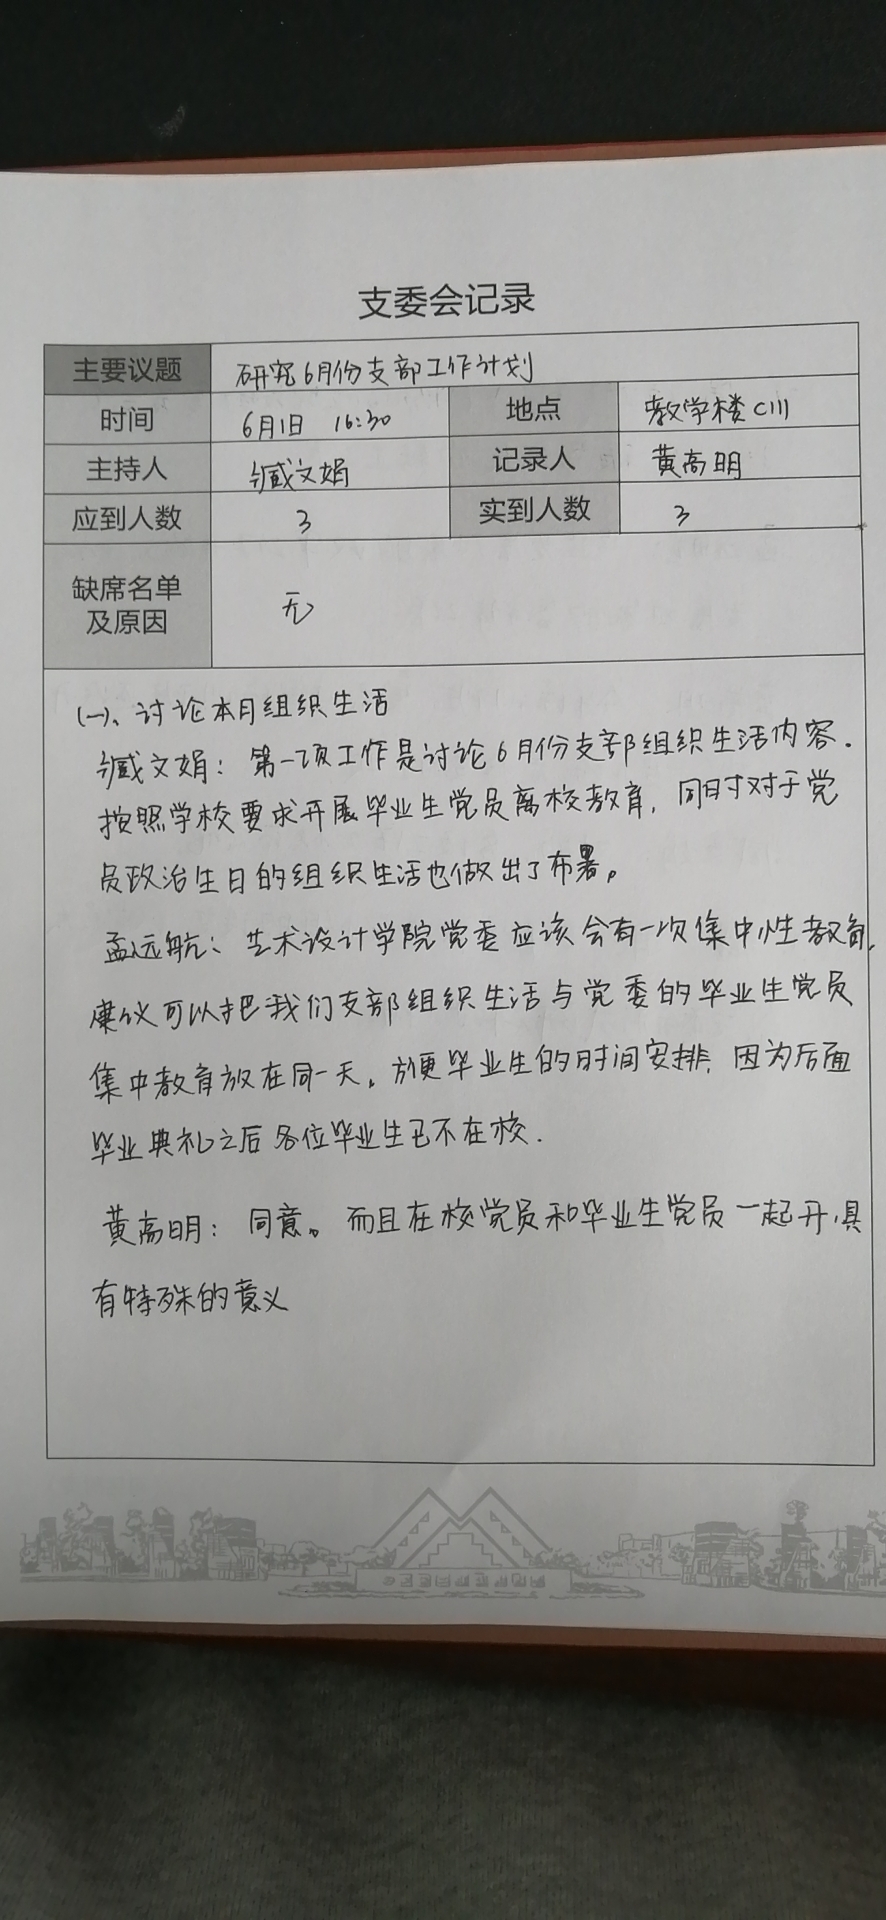 支委会记录
主要议题 研究6月份支部工作计划
时间 6月1日 16:30 地点 教学楼C111
主持人 臧文娟 记录人 黄高明
应到人数 3 实到人数 3
缺席名单
及原因 无
(一)、讨论本月组织生活
臧文娟：第一项工作是讨论6月份支部组织生活内容.
按照学校要求开展毕业生党员离校教育，同时对于党
员政治生日的组织生活也做出了布署。
孟远航：艺术设计学院党委应该会有一次集中性教育,
建议可以把我们支部组织生活与党委的毕业生党员
集中教育放在同一天。方便毕业生的时间安排，因为后面
毕业典礼之后各位毕业生已不在校.
黄高明：同意。而且在校党员和毕业生党员一起开,具
有特殊的意义